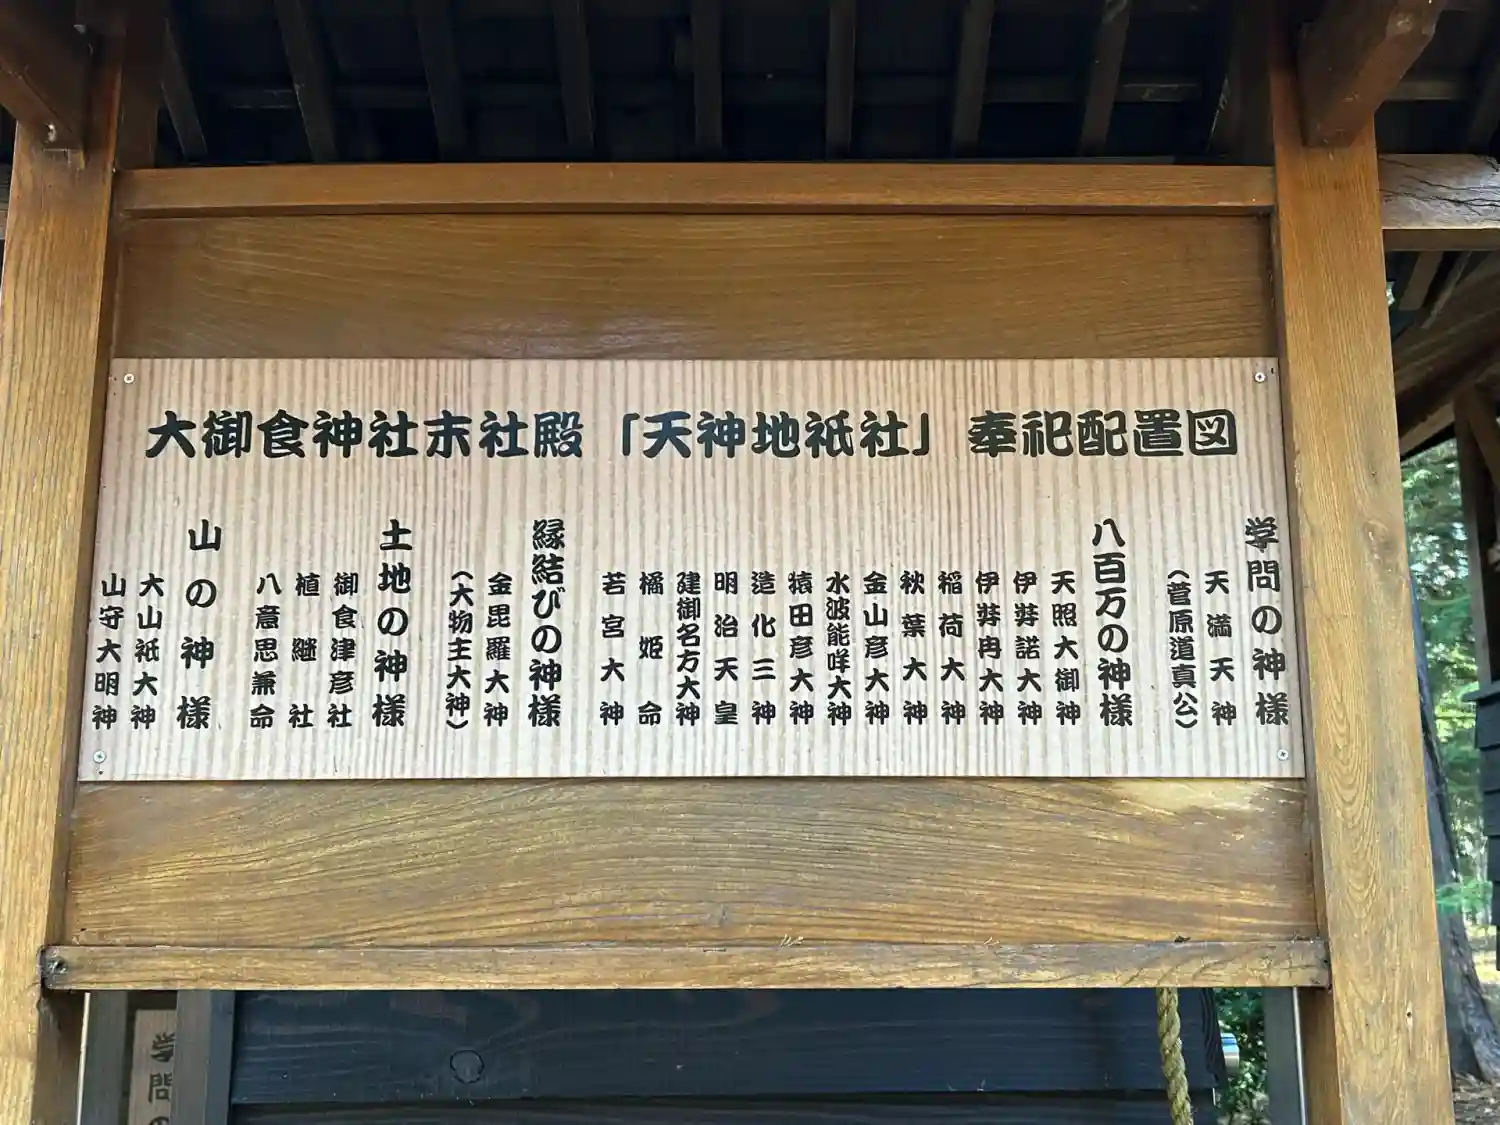 大御食神社末社殿「天神地祇社」奉祀配置図
学問の神様
天満天神
(菅原道真公)
八百万の神様
天照大御神
伊弉諾大神
伊弉冉大神
稲荷大神
秋葉大神
金山彦大神
水波能咩大神
猿田彦大神
造化三神
明治天皇
建御名方大神
橘姫命
若宮大神
縁結びの神様
金毘羅大神
(大物主大神)
土地の神様
御食津彦社
植継社
八意思兼命
山の神様
大山祇大神
山守大明神
学問の